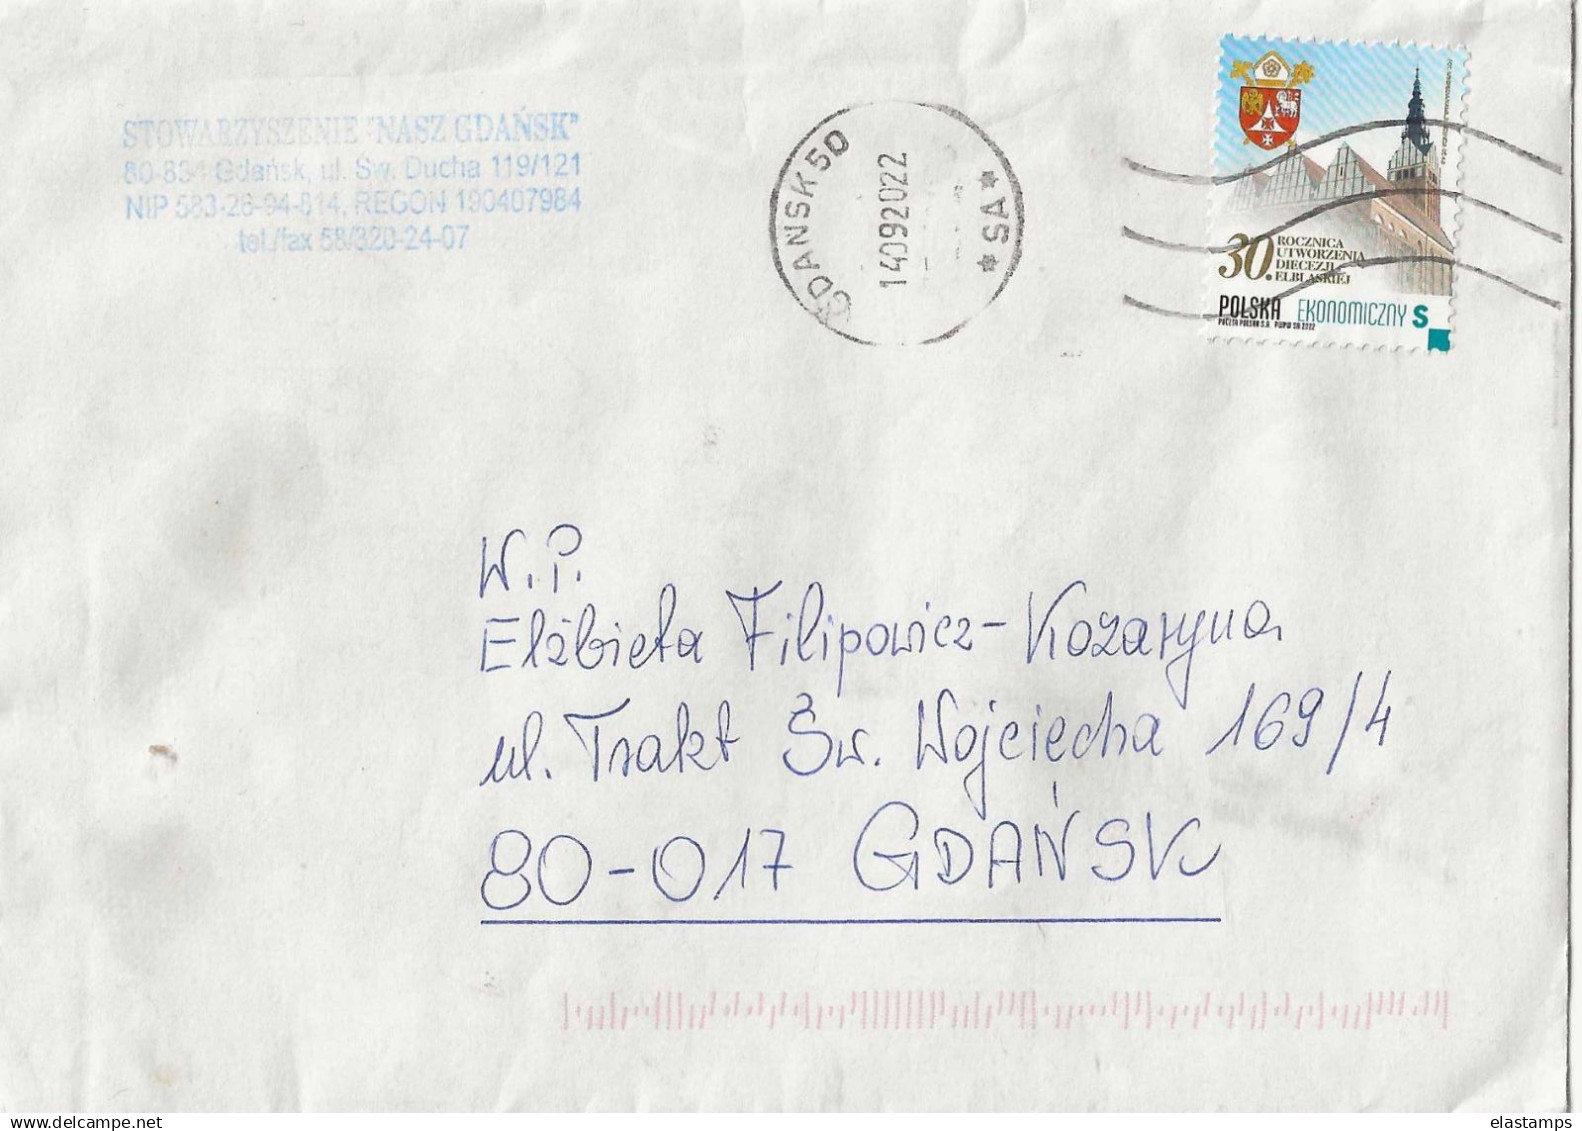 STOWARZYSZENIE "NASZ GDAŃSK"
80-834 Gdańsk, ul. Św. Ducha 119/121
NIP 583-26-94-814, REGON 190407984
tel./fax 58/320-24-07
GDAŃSK 50
14092022
* SA *
30. ROCZNICA
UTWORZENIA
DIECEZJI
ELBLĄSKIEJ
POLSKA EKONOMICZNY S
POCZTA POLSKA S.A. PWPW SA 2022
W.P.
Elżbieta Filipowicz-Kozaryna
ul. Trakt Św. Wojciecha 169/4
80-017 GDAŃSK
www.delcampe.net
elastamps